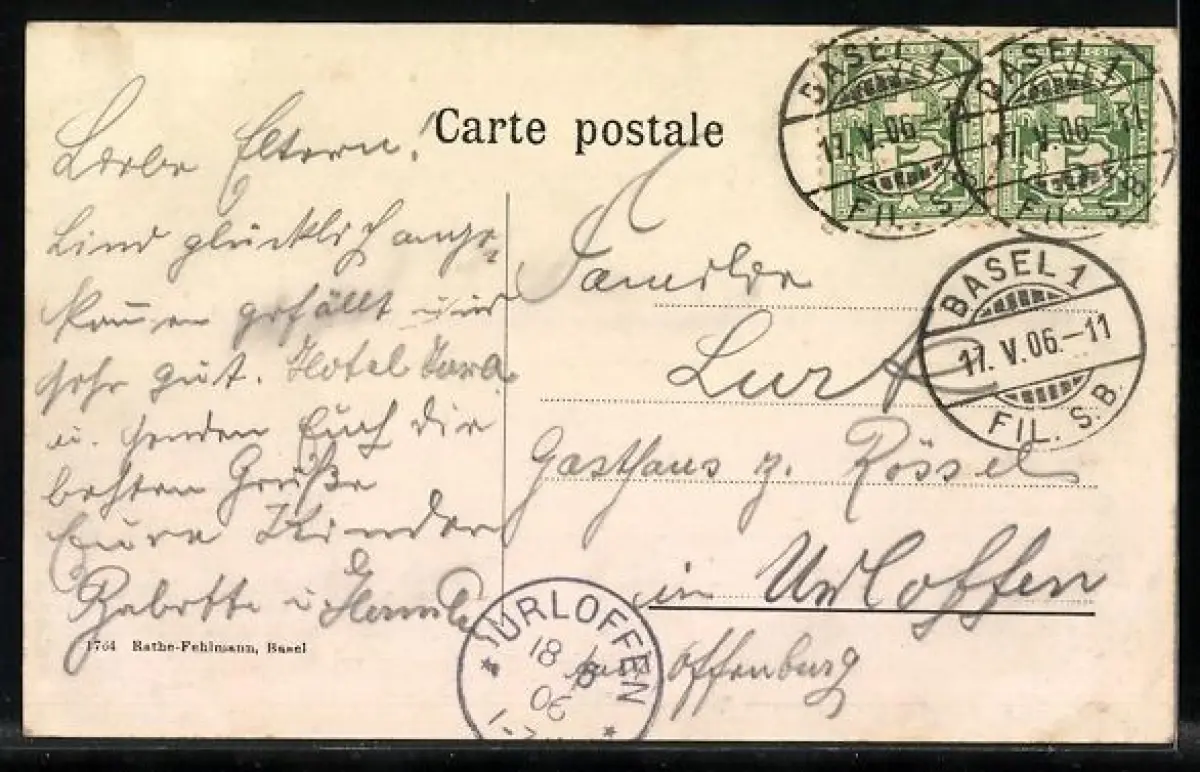 Carte postale
BASEL 1
17. V. 06.-11
FIL. S. B.
BASEL 1
17. V. 06.-11
FIL. S. B.
BASEL 1
17. V. 06.-11
FIL. S. B.
Liebe Eltern!
Sind glücklich ange-
kommen gefällt uns
sehr gut. Hotel
u. senden Euch die
besten Grüße
Eure Kinder
Babette u
1764 Rathe-Fehlmann, Basel
Familie
Gasthaus z. Rössel
in Urloffen
Offenburg
URLOFFEN
18 5
06